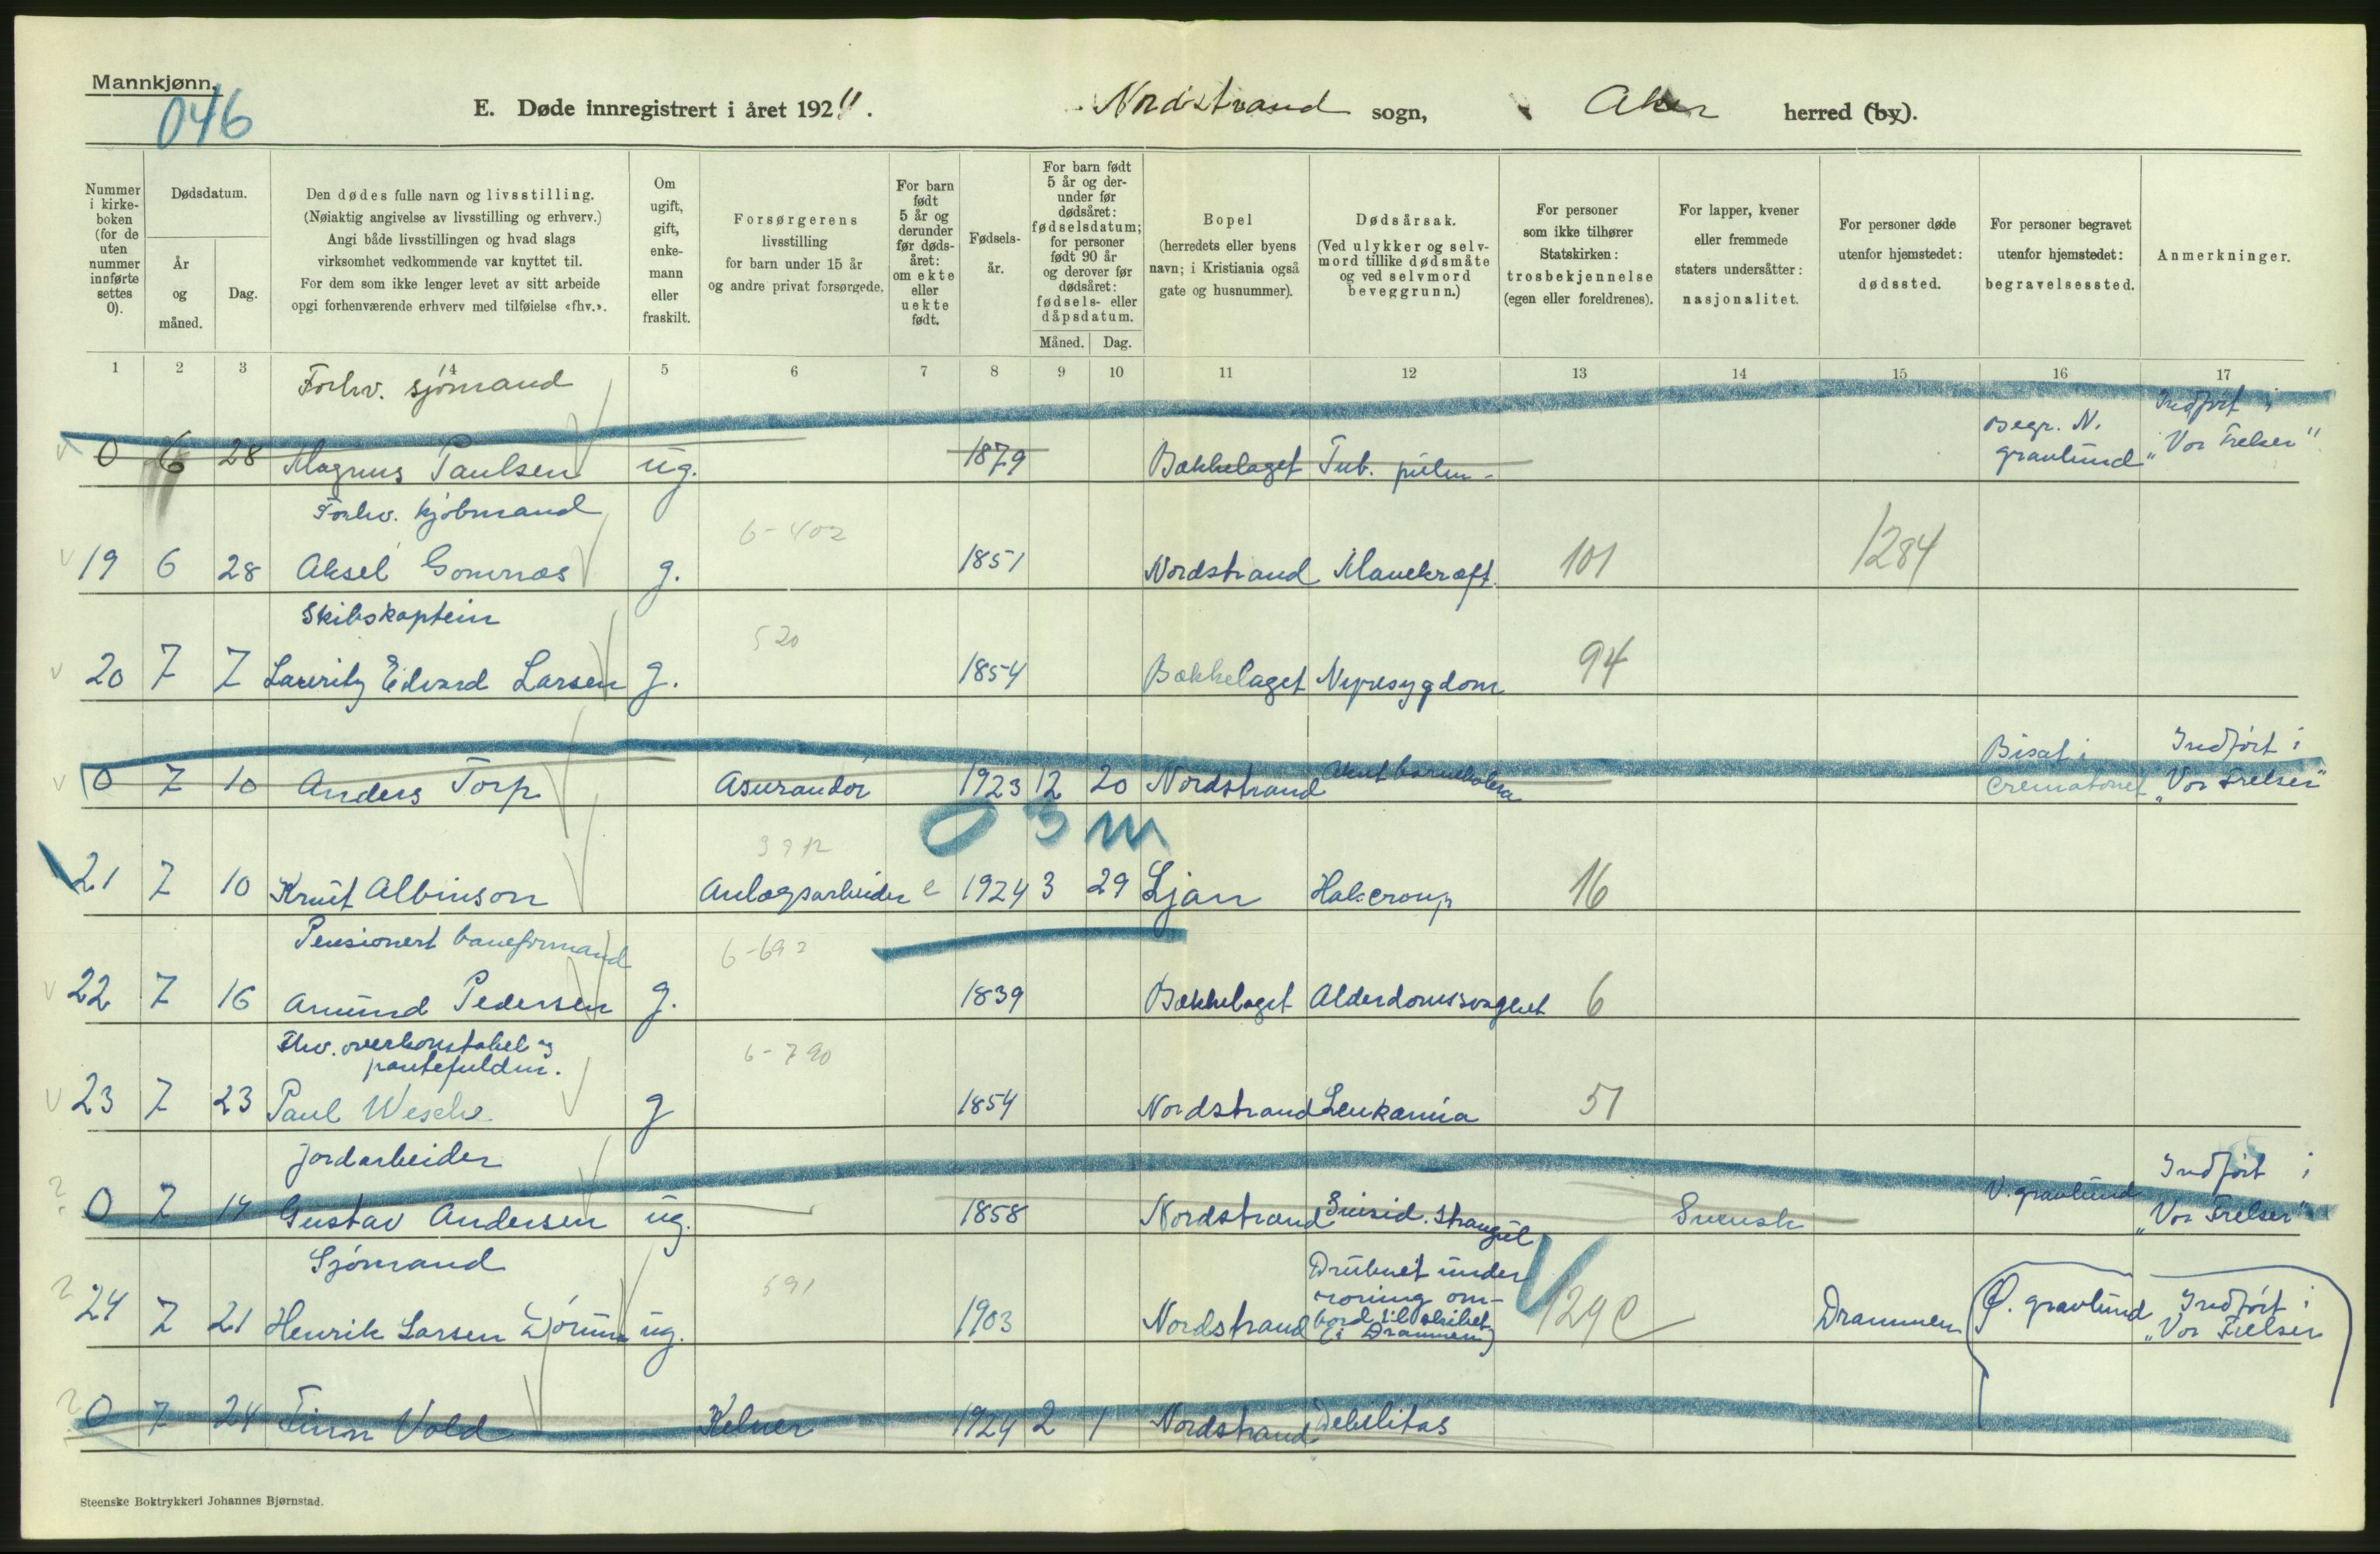 Mannkjønn.
046
E. Døde innregistrert i året 1924.
Nordstrand sogn,
Aker herred (by).
Nummer i kirke-boken (for de uten nummer innførte settes 0).
Dødsdatum.
År og måned.
Dag.
Den dødes fulle navn og livsstilling.
(Nøiaktig angivelse av livsstilling og erhverv.)
Angi både livsstillingen og hvad slags
virksomhet vedkommende var knyttet til.
For dem som ikke lenger levet av sitt arbeide
opgi forhenværende erhverv med tilføielse «fhv.».
Om ugift, gift, enke-mann eller fraskilt.
Forsørgerens
livsstilling
for barn under 15 år
og andre privat forsørgede.
For barn født 5 år og derunder før døds-året: om ekte eller uekte født.
Fødsels-år.
For barn født 5 år og der-under før dødsåret: fødselsdatum; for personer født 90 år og derover før dødsåret: fødsels- eller dåpsdatum.
Måned.
Dag.
Bopel
(herredets eller byens
navn; i Kristiania også
gate og husnummer).
Dødsårsak.
(Ved ulykker og selv-
mord tillike dødsmåte
og ved selvmord
beveggrunn.)
For personer
som ikke tilhører
Statskirken:
trosbekjennelse
(egen eller foreldrenes).
For lapper, kvener
eller fremmede
staters undersåtter:
nasjonalitet.
For personer døde
utenfor hjemstedet:
dødssted.
For personer begravet
utenfor hjemstedet:
begravelsessted.
Anmerkninger.
1 2 3 4 5 6 7 8 9 10 11 12 13 14 15 16 17
Forhv. sjømand
0 6 28 Magnus Paulsen ug. 1879 Bækkelaget Tub. pulm - Begr. N. gravlund Indført i "Vor Frelser"
Forhv. kjøbmand
19 6 28 Aksel Gomnæs g. 6-402 1851 Nordstrand Mavekræft. 101 1284
Skibskaptein
20 7 7 Lauritz Edvard Larsen g. 520 1854 Bækkelaget Nyresygdom 94
0 7 10 Anders Torp Asurandør 1923 12 20 Nordstrand Akut barnekolera Bisat i Crematoriet Indført i "Vor Frelser"
0 3 m
21 7 10 Knut Albinson Anlægsarbeider e 1924 3 29 Ljan Halscroup 16
Pensionert baneformand
22 7 16 Amund Pedersen g. 6-692 1839 Bækkelaget Alderdomssvaghet 6
Fhv. overkonstabel og
pantefuldm.
23 7 23 Paul Wesche g 6-790 1854 Nordstrand Leukæmia 51
Jordarbeider
0 7 14 Gustav Andersen ug. 1858 Nordstrand Suisid. strangul Svensk V. gravlund Indført i "Vor Frelser"
Sjømand
24 7 21 Henrik Larsen ug. 591 1903 Nordstrand Druknet under roning om-bord til skibet (i Drammen) 129 e Drammen Ø. gravlund Indført i "Vor Frelser
0 7 24 Finn Vold Kelner 1924 2 1 Nordstrand Debilitas
Steenske Boktrykkeri Johannes Bjørnstad.